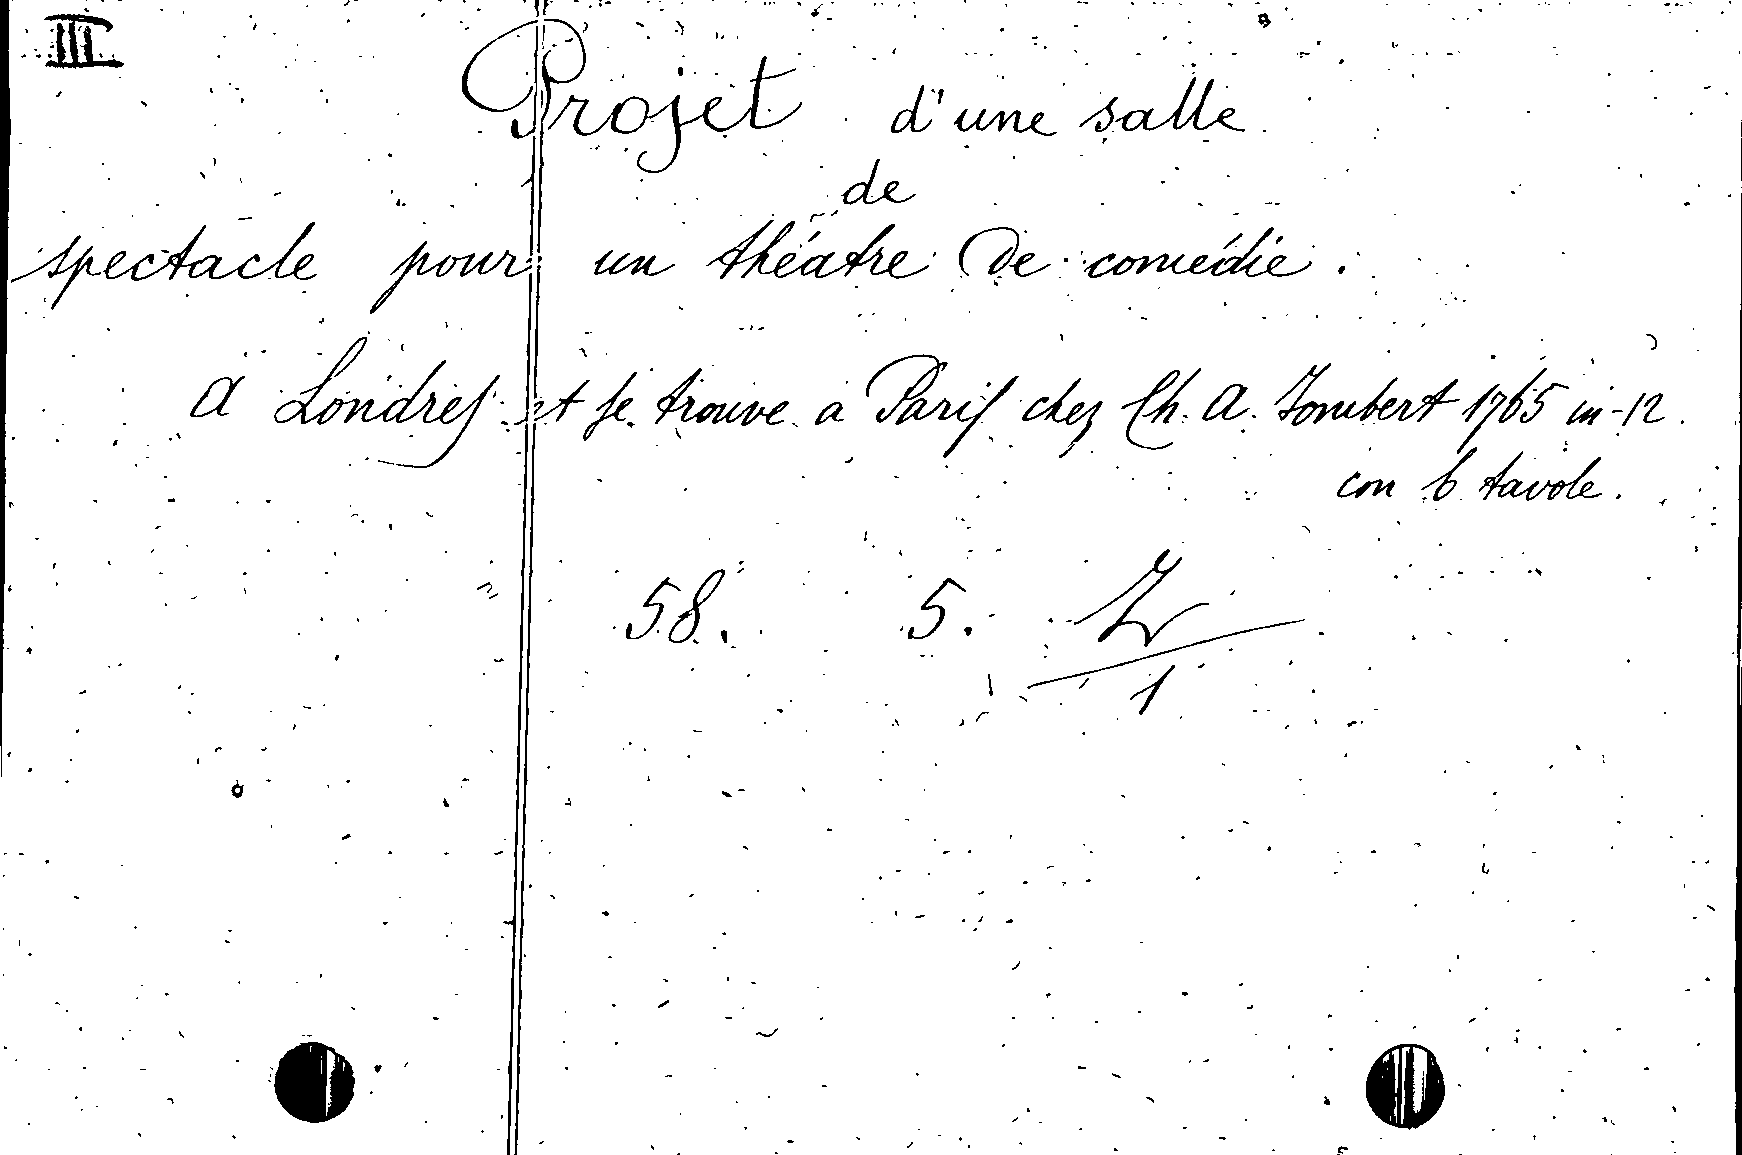 III
Projet d'une salle
de
spectacle pour un théatre de comédie.
A Londres et se trouve a Paris chez Ch. A. Jombert 1765 in-12.
con 6 tavole.
58. 5. I
1